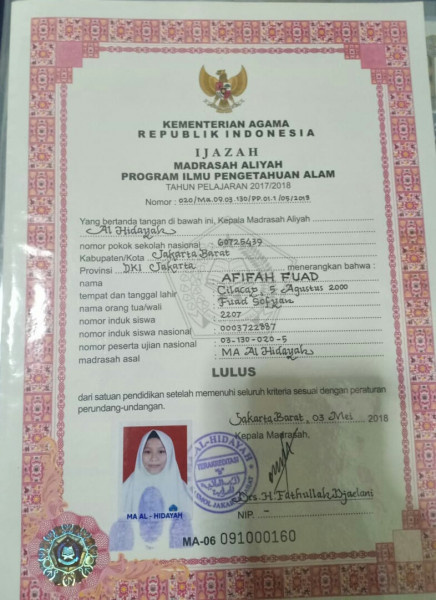 KEMENTERIAN AGAMA
REPUBLIK INDONESIA
IJAZAH
MADRASAH ALIYAH
PROGRAM ILMU PENGETAHUAN ALAM
TAHUN PELAJARAN 2017/2018
Nomor : 020/MA.09.03.130/PP.01.1/05/2018
Yang bertanda tangan di bawah ini, Kepala Madrasah Aliyah
Al Hidayah
nomor pokok sekolah nasional 60725439
Kabupaten/Kota Jakarta Barat
Provinsi DKI Jakarta menerangkan bahwa :
nama AFIFAH FUAD
tempat dan tanggal lahir Cilacap, 5 Agustus 2000
nama orang tua/wali Fuad Sofyan
nomor induk siswa 2207
nomor induk siswa nasional 0003722887
nomor peserta ujian nasional 03-130-020-5
madrasah asal MA Al Hidayah
LULUS
dari satuan pendidikan setelah memenuhi seluruh kriteria sesuai dengan peraturan
perundang-undangan.
Jakarta Barat, 03 Mei 2018
Kepala Madrasah,
AL-HIDAYAH
TERAKREDITASI
JAKARTA BARAT
Drs. H. Fathullah Djaelani
NIP. -
MA AL - HIDAYAH
MA-06 091000160